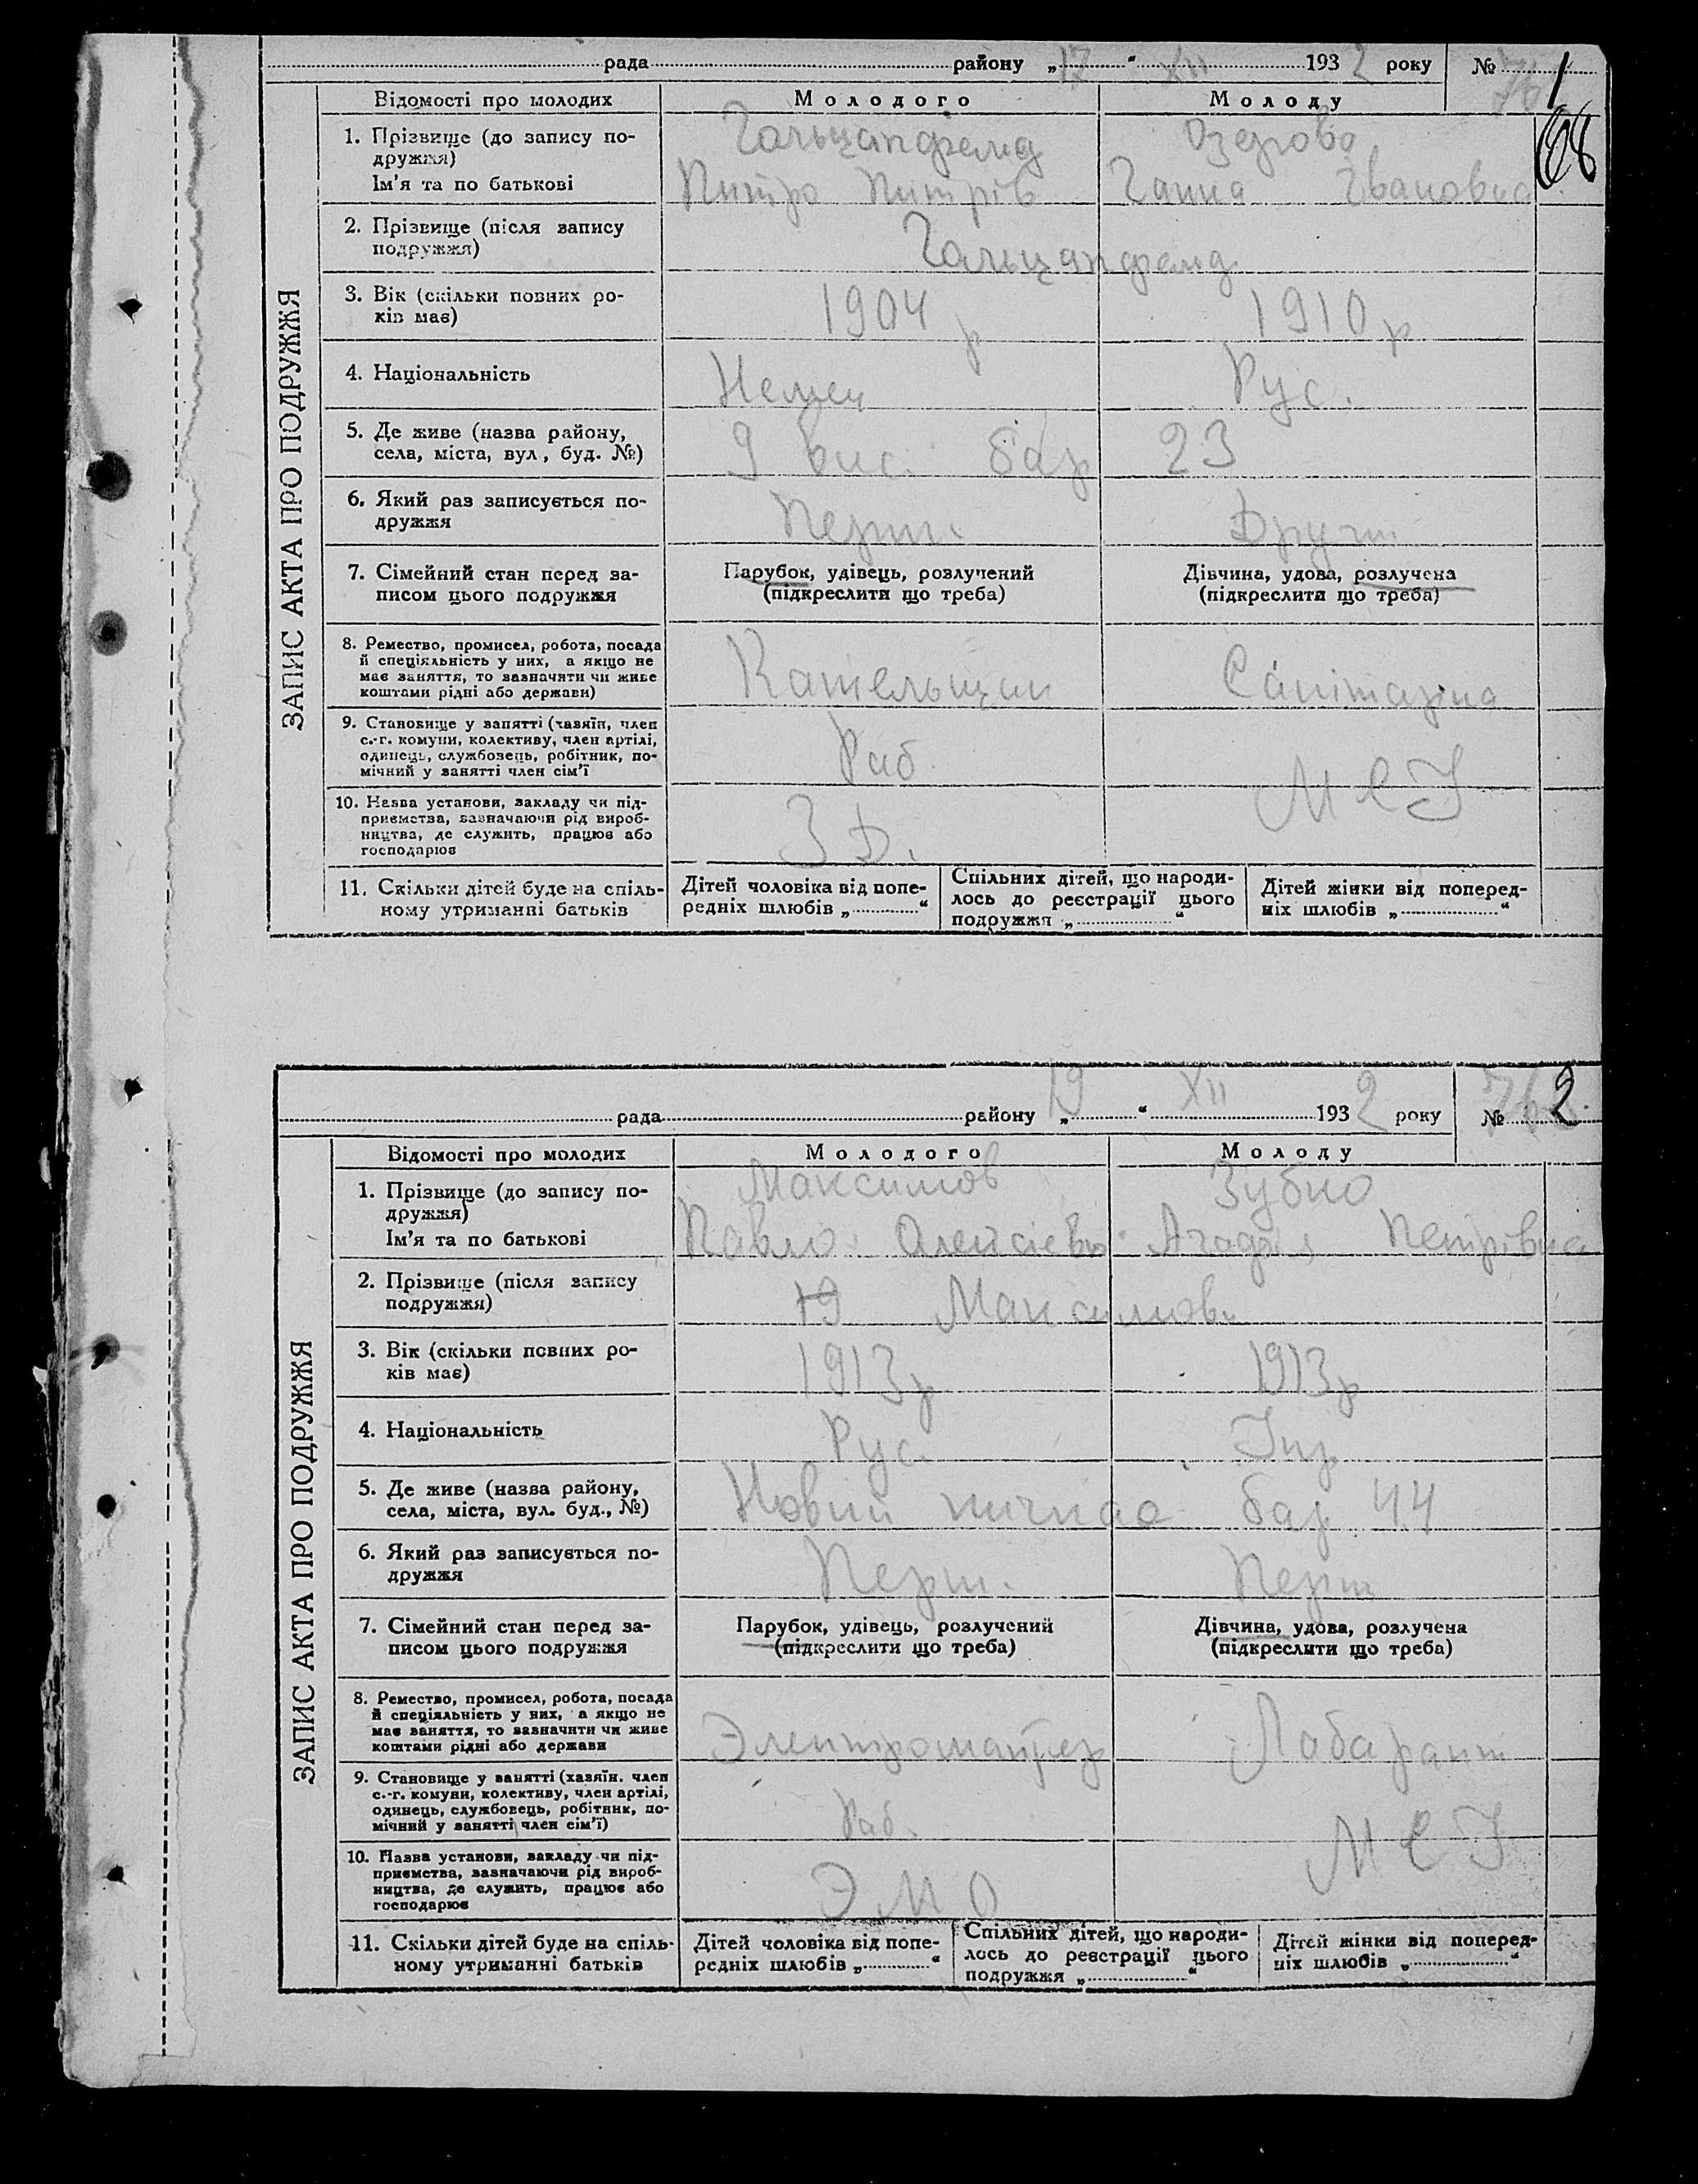 рада району „17“ XII 1932 року № 1
68
ЗАПИС АКТА ПРО ПОДРУЖЖЯ
Відомості про молодих Молодого Молоду
1. Прізвище (до запису по-
дружжя) Озерова
Ім'я та по батькові Питро Питрів Ганна Івановна
2. Прізвище (після запису
подружжя)
3. Вік (скільки повних ро-
ків має) 1904 р 1910 р
4. Національність Немец Рус.
5. Де живе (назва району,
села, міста, вул, буд. №) 9 вис. бар 23
6. Який раз записується по-
дружжя Перш. Други
7. Сімейний стан перед за-
писом цього подружжя
Парубок, удівець, розлучений
(підкреслити що треба)
Дівчина, удова, розлучена
(підкреслити що треба)
8. Ремество, промисел, робота, посада
й спеціяльність у них, а якщо не
має заняття, то зазначити чи живе
коштами рідні або держави) Кательщик Санітарка
9. Становище у занятті (хазяїн, член
с.-г. комуни, колективу, член артілі,
одинець, службовець, робітник, по-
мічний у занятті член сім'ї Раб.
10. Назва установи, закладу чи під-
приємства, зазначаючи рід вироб-
ництва, де служить, працює або
господарює З Д. М Е І
11. Скільки дітей буде на спіль-
ному утриманні батьків
Дітей чоловіка від попе-
редніх шлюбів „ “
Спільних дітей, що народи-
лось до реєстрації цього
подружжя „ “
Дітей жінки від поперед-
ніх шлюбів „ “
рада району „19“ XII 1932 року № 2
ЗАПИС АКТА ПРО ПОДРУЖЖЯ
Відомості про молодих Молодого Молоду
1. Прізвище (до запису по-
дружжя) Максимов Зубко
Ім'я та по батькові Павло Олексієви Петрівна
2. Прізвище (після запису
подружжя) 19 Максимови
3. Вік (скільки повних ро-
ків має) 1913 р 1913 р
4. Національність Рус.
5. Де живе (назва району,
села, міста, вул. буд., №) Новий бар 44
6. Який раз записується по-
дружжя Перш. Перш
7. Сімейний стан перед за-
писом цього подружжя
Парубок, удівець, розлучений
(підкреслити що треба)
Дівчина, удова, розлучена
(підкреслити що треба)
8. Ремество, промисел, робота, посада
й спеціяльність у них, а якщо не
має заняття, то зазначити чи живе
коштами рідні або держави Лабарант
9. Становище у занятті (хазяїн. член
с.-г. комуни, колективу, член артілі,
одинець, службовець, робітник, по-
мічний у занятті член сім'ї) Раб.
10. Назва установи, закладу чи під-
приємства, зазначаючи рід вироб-
ництва, де служить, працює або
господарює Э М О М Е І
11. Скільки дітей буде на спіль-
ному утриманні батьків
Дітей чоловіка від попе-
редніх шлюбів „ “
Спільних дітей, що народи-
лось до реєстрації цього
подружжя „ “
Дітей жінки від поперед-
ніх шлюбів „ “